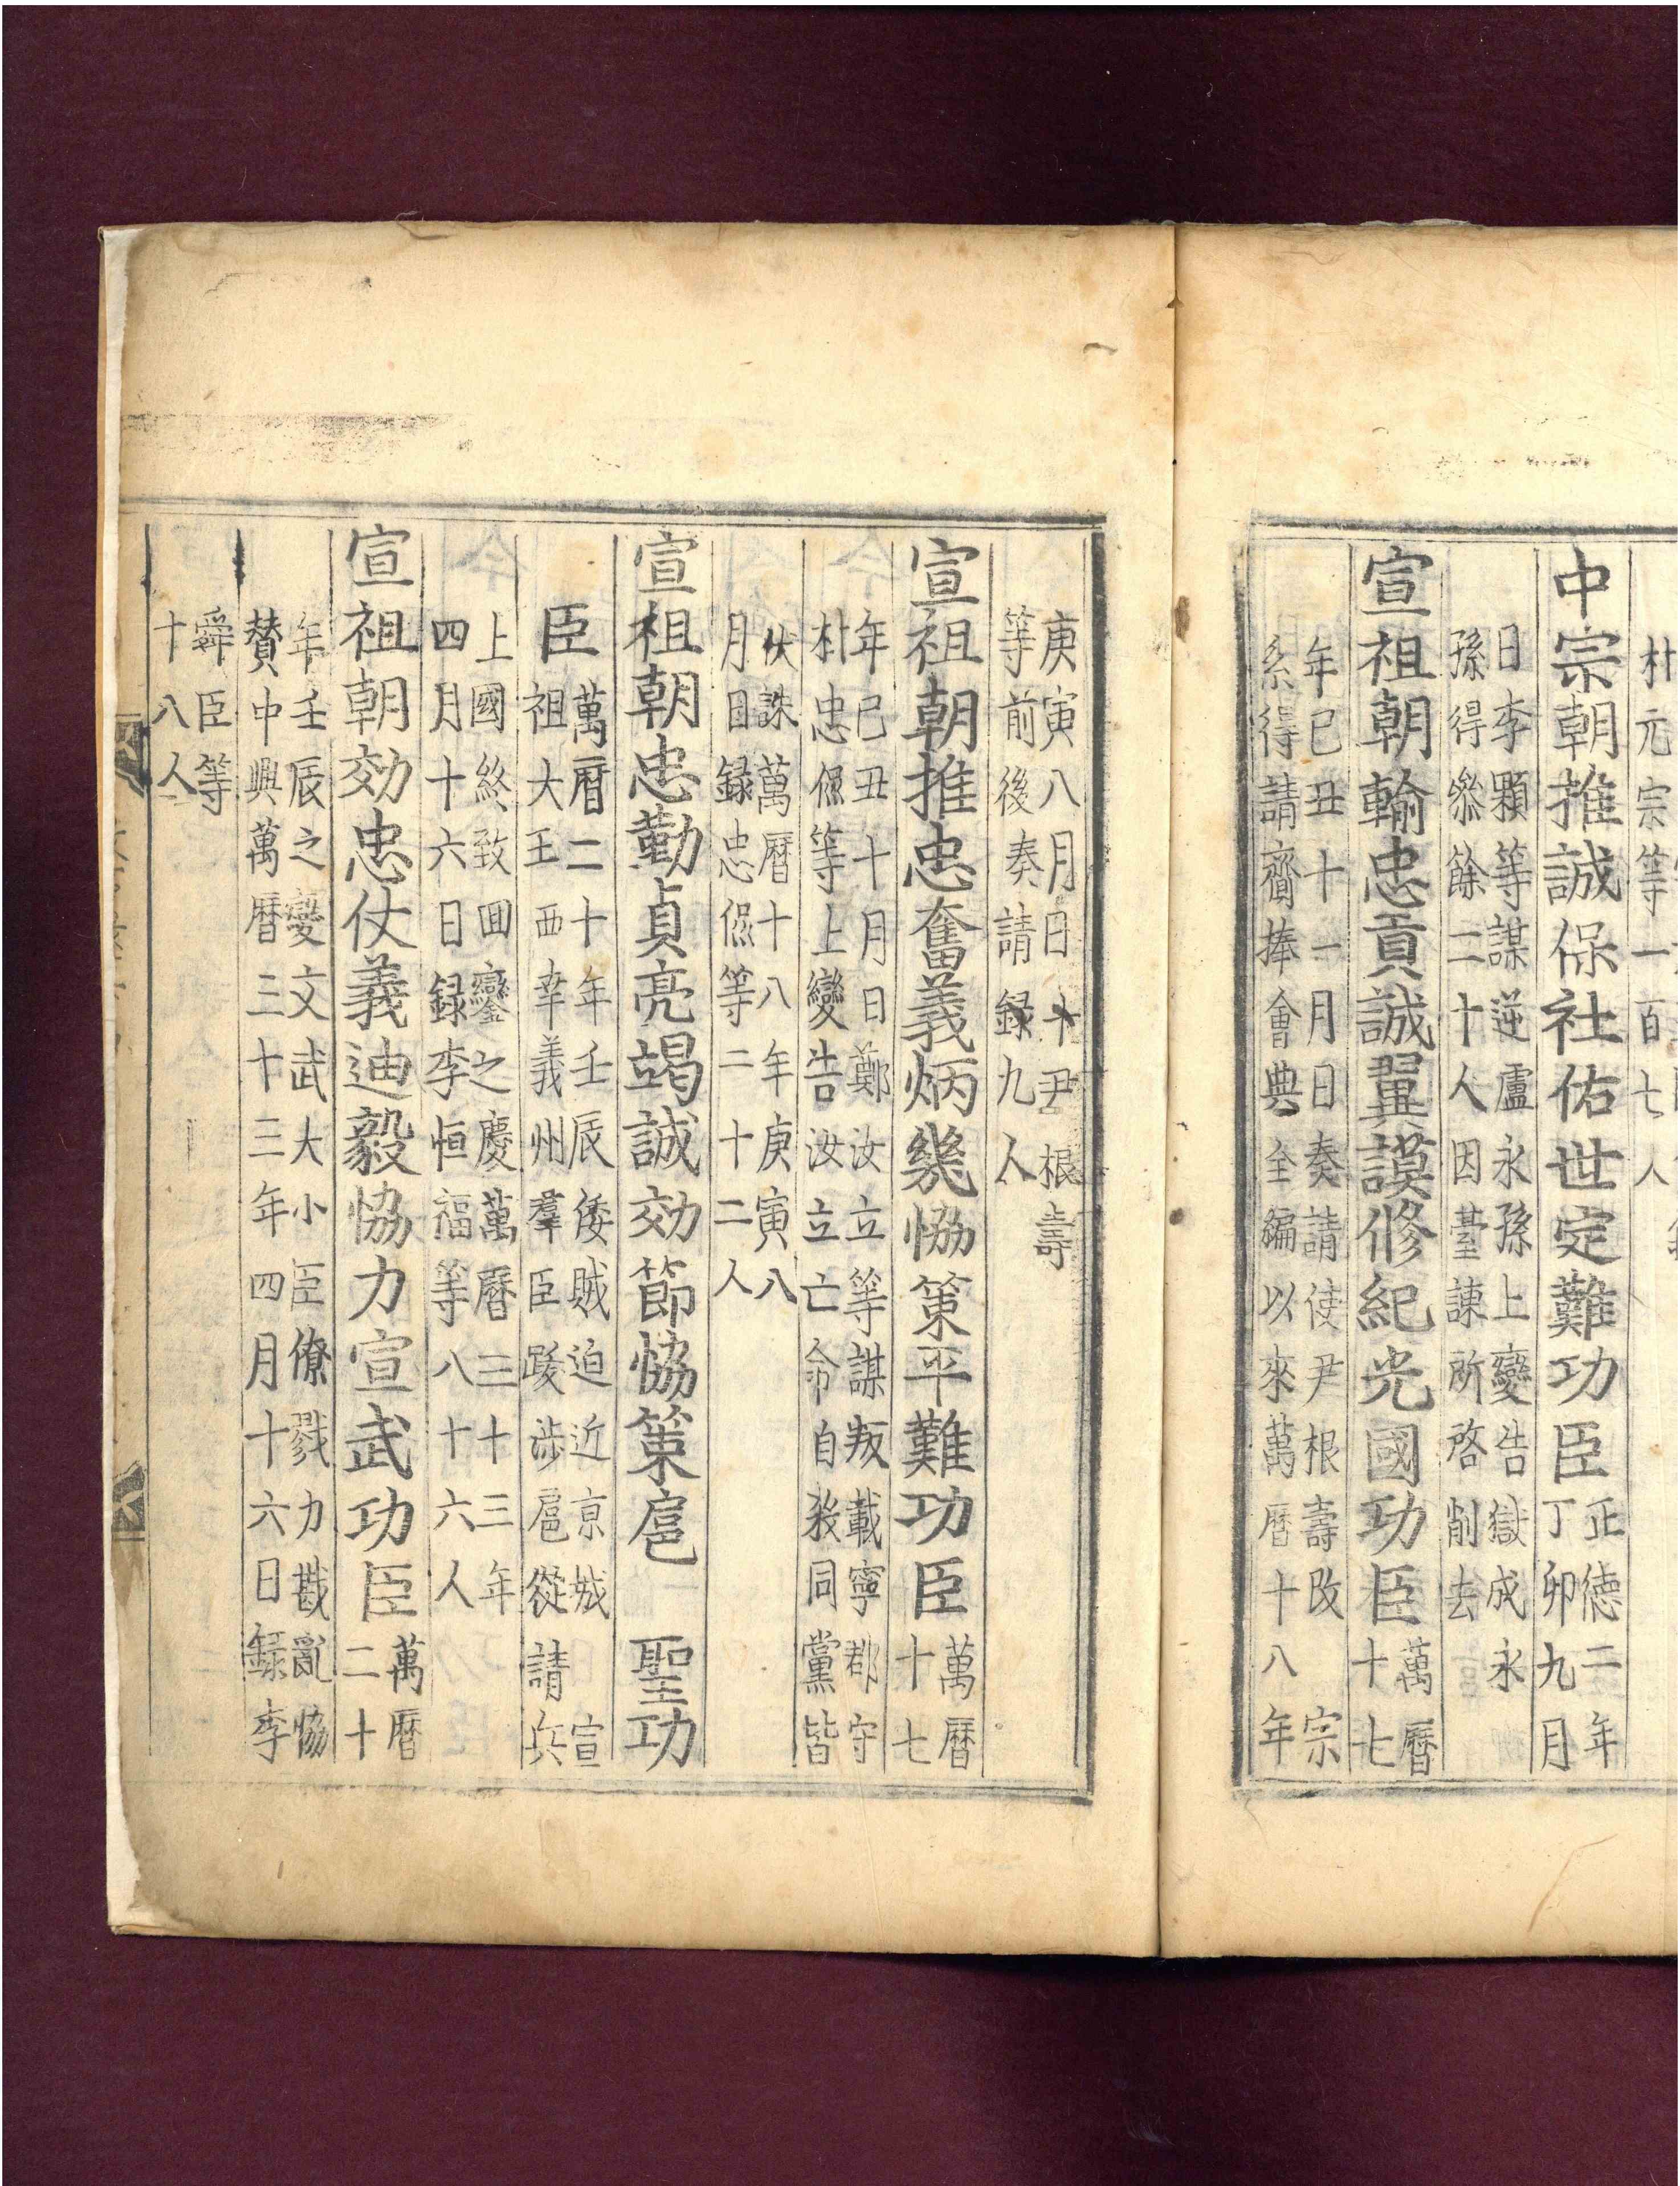 朴元宗等一百七人
中宗朝推誠保社佑世定難功臣
正德二年
丁卯九月
日李顆等謀逆盧永孫上變告獄成永
孫得叅餘二十人因臺諫所啓削去
宣祖朝輸忠貢誠翼謨修紀光國功臣
萬曆
十七
年己丑十一月日奏請使尹根壽改宗
系得請齎捧會典全編以來萬曆十八年
庚寅八月日十尹根壽
等前後奏請録九人
宣祖朝推忠奮義炳幾恊策平難功臣
萬曆
十七
年己丑十月日鄭汝立等謀叛載寧郡守
朴忠侃等上變告汝立亡命自殺同黨皆
伏誅萬曆十八年庚寅八
月日録忠侃等二十二人
宣祖朝忠勤貞亮竭誠効節恊策扈 聖功
臣
萬曆二十年壬辰倭賊迫近京城 宣
祖大王西幸義州羣臣跋涉扈從請兵
上國終致回鑾之慶萬曆三十三年
四月十六日録李恒福等八十六人
宣祖朝効忠仗義迪毅恊力宣武功臣
萬曆
二十
年壬辰之變文武大小臣僚戮力戡亂恊
賛中興萬曆三十三年四月十六日録李
舜臣等
十八人